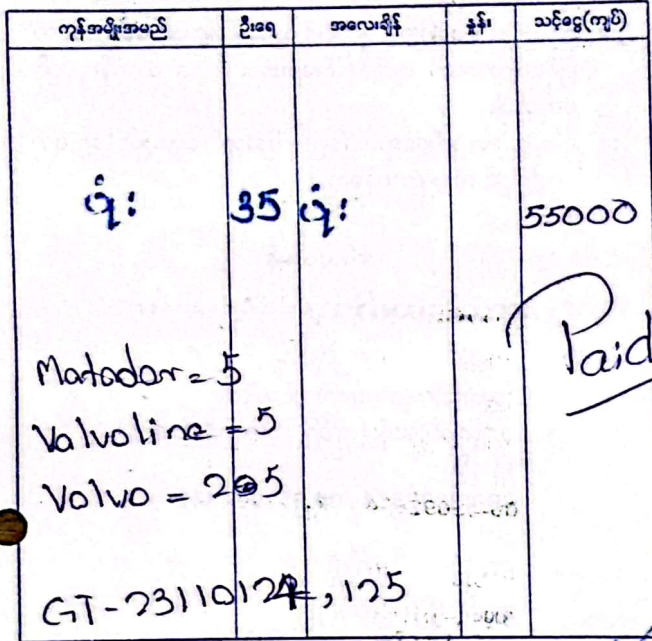 ကုန်အမျိုးအမည် ဦးရေ အလေးချိန် နှုန်း သင့်ငွေ(ကျပ်)
ပုံး 35 ပုံး 55000
Paid
Matador = 5
Valvoline = 5
Volvo = 25
GT-23110124, 125